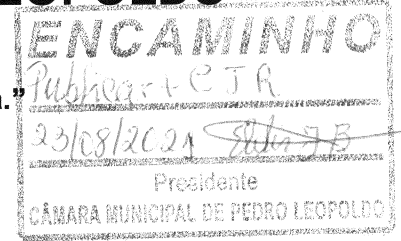 ENCAMINHO
Publicar + CJR
."
23/08/2021
Presidente
CÂMARA MUNICIPAL DE PEDRO LEOPOLDO